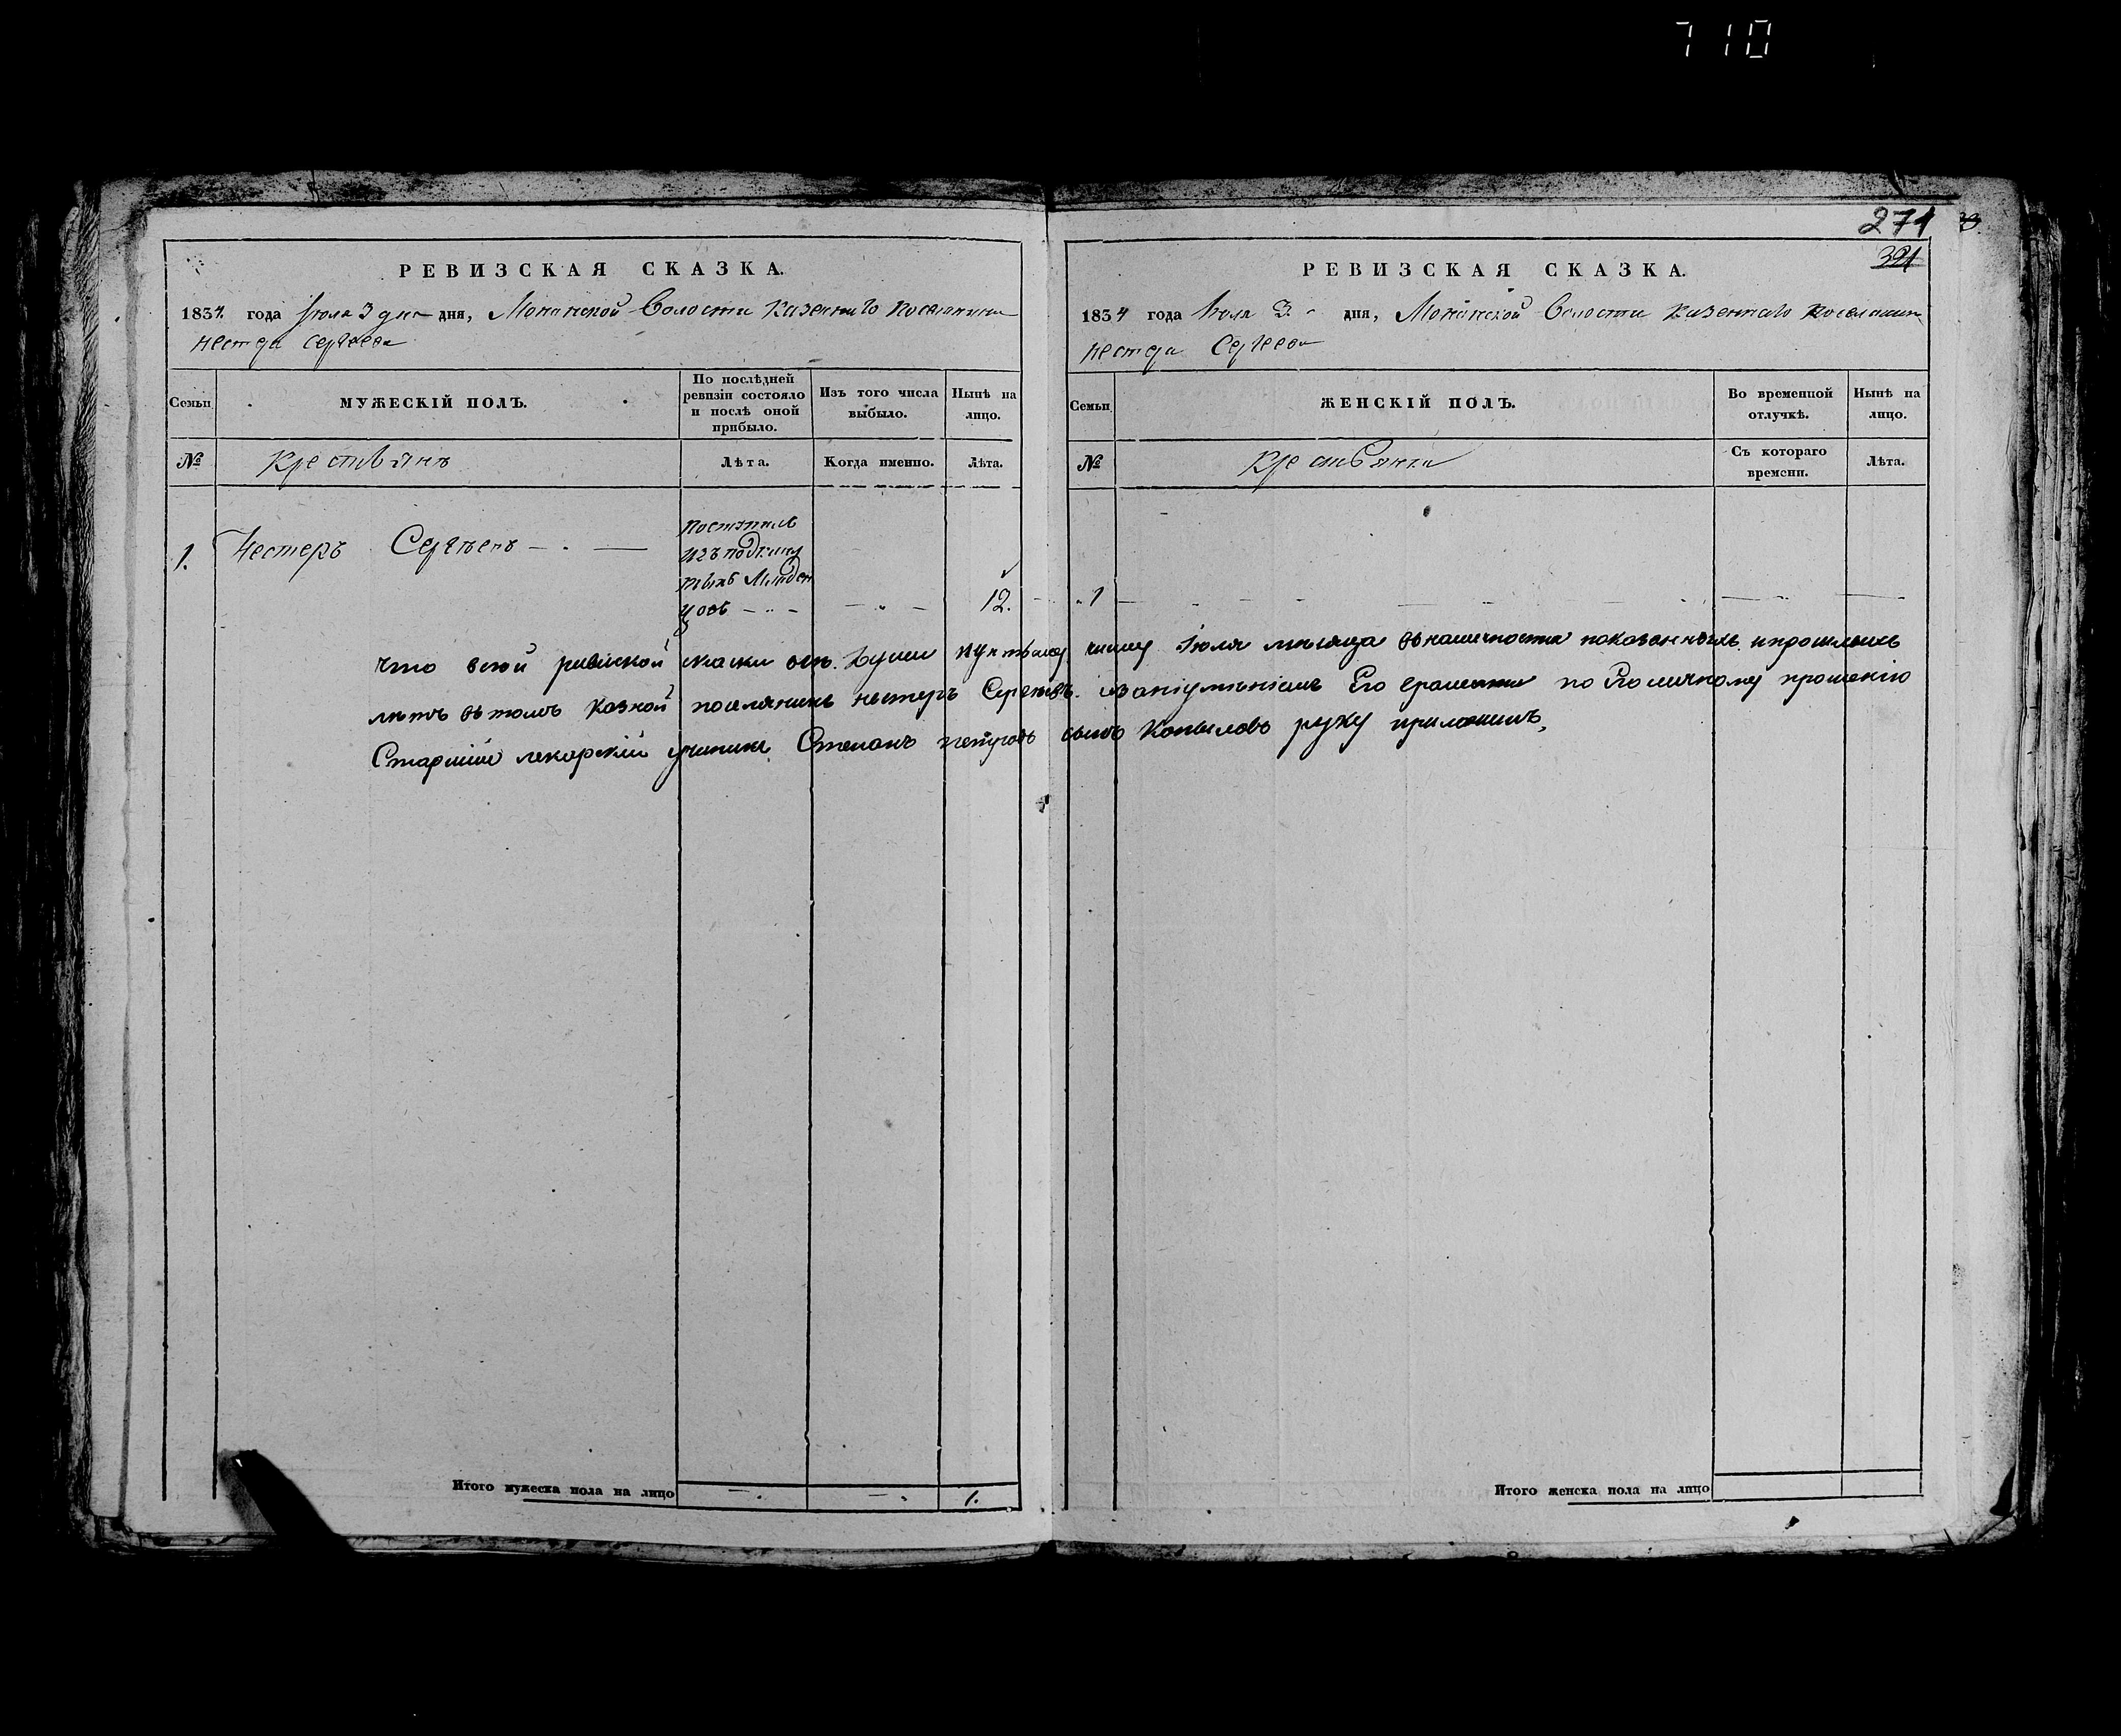 710
271
391
РЕВИЗСКАЯ СКАЗКА.
1834 года Іюля 3 дня дня, Волости Казеннаго поселянина
Нестера Сергеева
Семьи
МУЖЕСКІЙ ПОЛЪ.
По послѣдней ревизіи состояло и послѣ оной прибыло.
Изъ того числа выбыло.
Нынѣ на лицо.
№
Крестьянъ
Лѣта.
Когда именно.
Лѣта.
1. Нестеръ Сергѣевъ
поступилъ
изъ подкину
тыхъ Младен
цовъ
12.
Итого мужеска пола на лицо
1.
РЕВИЗСКАЯ СКАЗКА.
1834 года Іюля 3 дня, Волости Казеннаго
Нестера Сергеева
Семьи
ЖЕНСКІЙ ПОЛЪ.
Во временной отлучкѣ.
Нынѣ на лицо.
№
Крестьянки
Съ котораго времени.
Лѣта.
1
что всей ревиской скаски души числу Іюля месяца вналичности показанныхъ ипрошлыхъ
летъ втомъ казной поселянинъ нестеръ Сергеевъ Его грамоте по Его личному прошению
Старший лекарский ученикъ Степанъ петровъ сынъ Копыловъ руку приложилъ,
Итого женска пола на лицо